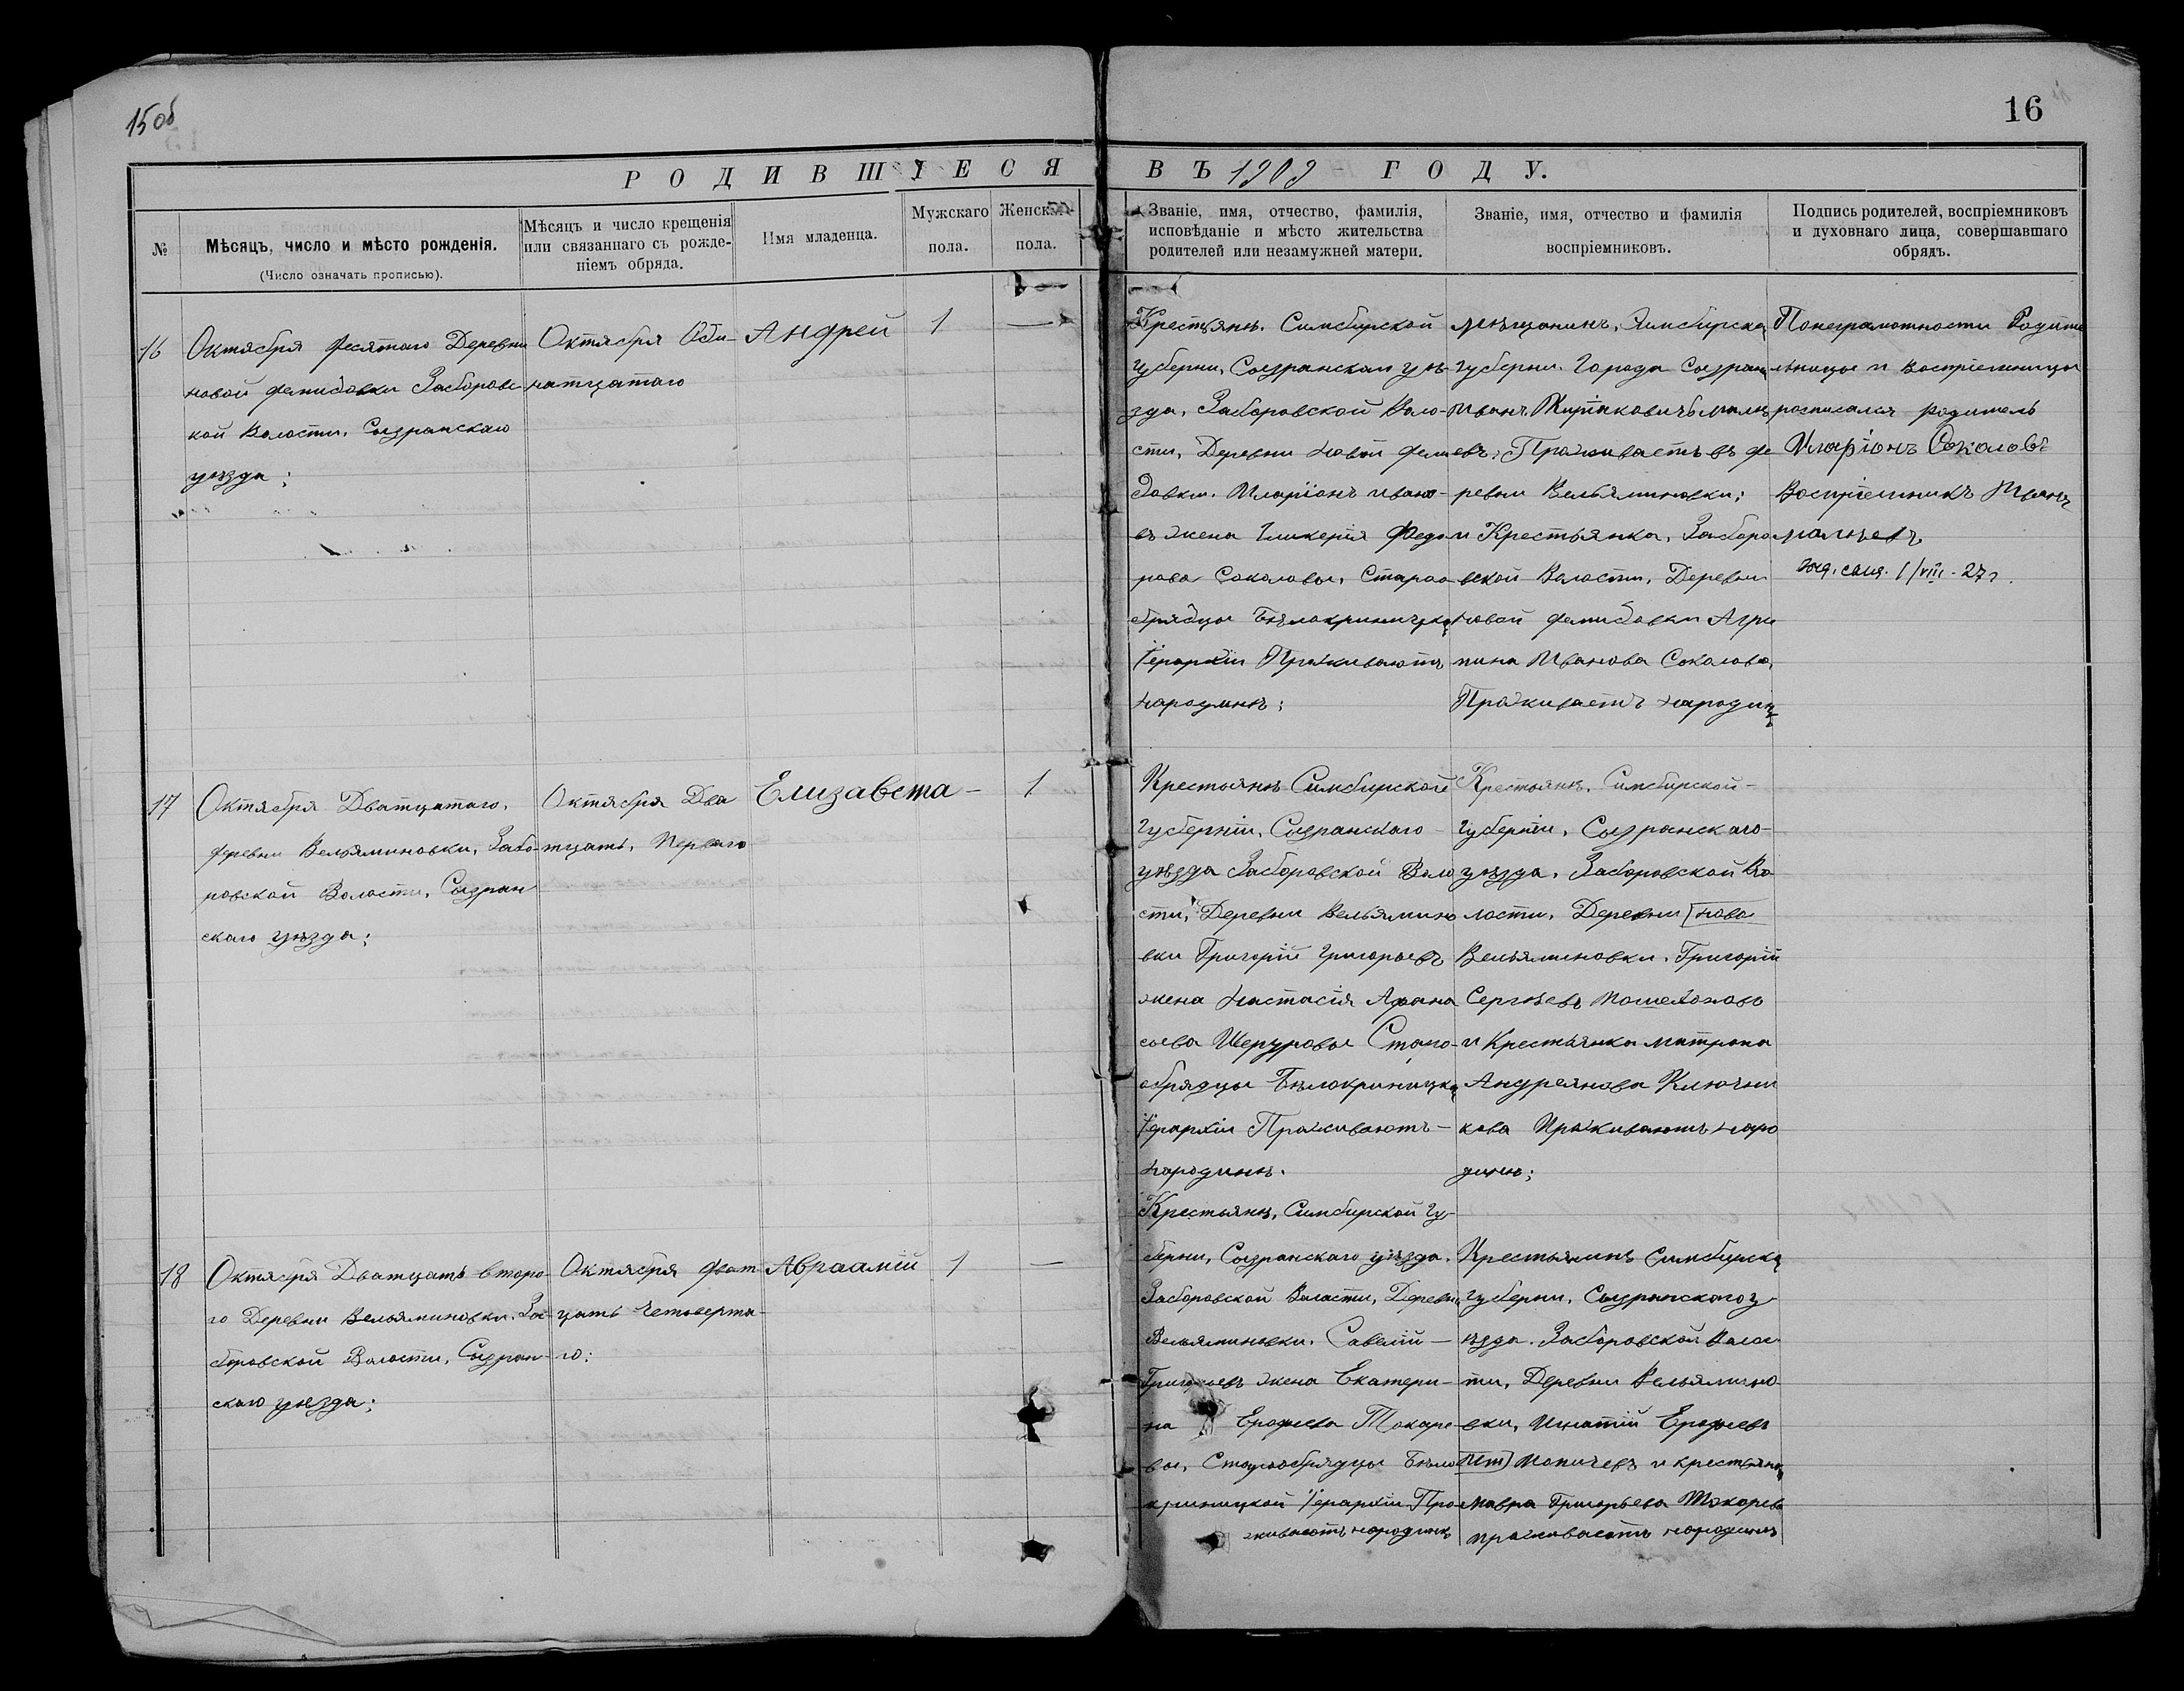 15 об
16
РОДИВШІЕСЯ ВЪ 1909 ГОДУ.
№
Мѣсяцъ, число и мѣсто рожденія.
(Число означать прописью).
Мѣсяцъ и число крещенія
или связаннаго съ рожде-
ніемъ обряда.
Имя младенца.
Мужскаго
пола.
Женскаго
пола.
Званіе, имя, отчество, фамилія,
исповѣданіе и мѣсто жительства
родителей или незамужней матери.
Званіе, имя, отчество и фамилія
воспріемниковъ.
Подпись родителей, воспріемниковъ
и духовнаго лица, совершавшаго
обрядъ.
16
Октября десятаго Деревни
новой демидовки Заборовс
кой Волости. Сызранскаго
уѣзда;
Октября Оди-
натцатаго
Андрей
1
—
Крестьянѣ. Симбирской
губерни, Сызранскаги уѣ-
зда, Заборовской Воло-
сти, Деревни новой деми
довки. Иларіонъ ивано-
въ жена Гликерія Федо
рова Соколовы, Староо
брядцы Бѣлокриницкой
Іерархіи Проживаютъ
народинѣ;
мѣщанинъ. Симбирской
губерни. Города Сызрани
Иванъ Киріаковичъ малы
евъ. Проживаетъ въ де
ревни Вельяминовки;
и Крестьянка, Заборо
вской Волости, Деревни
новой демидовки Агри
пина Иванова Соколова,
Проживаетъ народинѣ
Понеграмотности Родите
льницы и воспріемницы
росписался родитель
Иларіонъ Соколовъ
Воспріемникъ Иванъ
малыевъ
1/VIII-27г.
17
Октября Дватцатаго,
деревни Вельяминовки, Забо-
ровской Волости, Сызран
скаго уѣзда;
Октября Два
тцать, Перваго
Елизавета —
1
Крестьянѣ Симбирской
Губерніи, Сызранскаго
уѣзда Заборовской Воло
сти, Деревни Вельямино
вки Григорій Григорьевъ
жена Настасія Афана
сьева Шепуровы Старо-
обрядцы Бѣлокриницкой
Іерархіи Проживаютъ —
народинѣ.
Крестьянѣ. Симбирской —
Губерніи, Сызранскаго —
уѣзда. Заборовской Во
лости, Деревни [ново
Вельяминовки. Григорій
Сергѣевъ Пошехоновъ
и Крестьянка матрона
Андреянова Ключни
кова Проживаютъ наро
динѣ;
18
Октября Дватцать второ-
го Деревни Вельяминовки. За-
боровской Волости, Сызран-
скаго уѣзда;
Октября дват
цать четверта-
го;
Авраамій
1
—
Крестьянѣ, Симбирской Гу-
берни, Сызранскаго уѣзда.
Заборовской Волости, Деревни
Вельяминовки. Савелій —
Григорьевъ жена Екатери-
на Ерофеева Токаре
вы, Старообрядцы Бѣло
криницкой Іерархіи Про
живаютъ народинѣ
Крестьянинъ Симбирской
губерни, Сызранскаго у
ѣзда. Заборовской Волос
ти, Деревни Вельямино
вки, Игнатій Ерофеевъ
Мопичевъ и крестьянка
мавра Григорьева Токарева
проживаетъ народинѣ